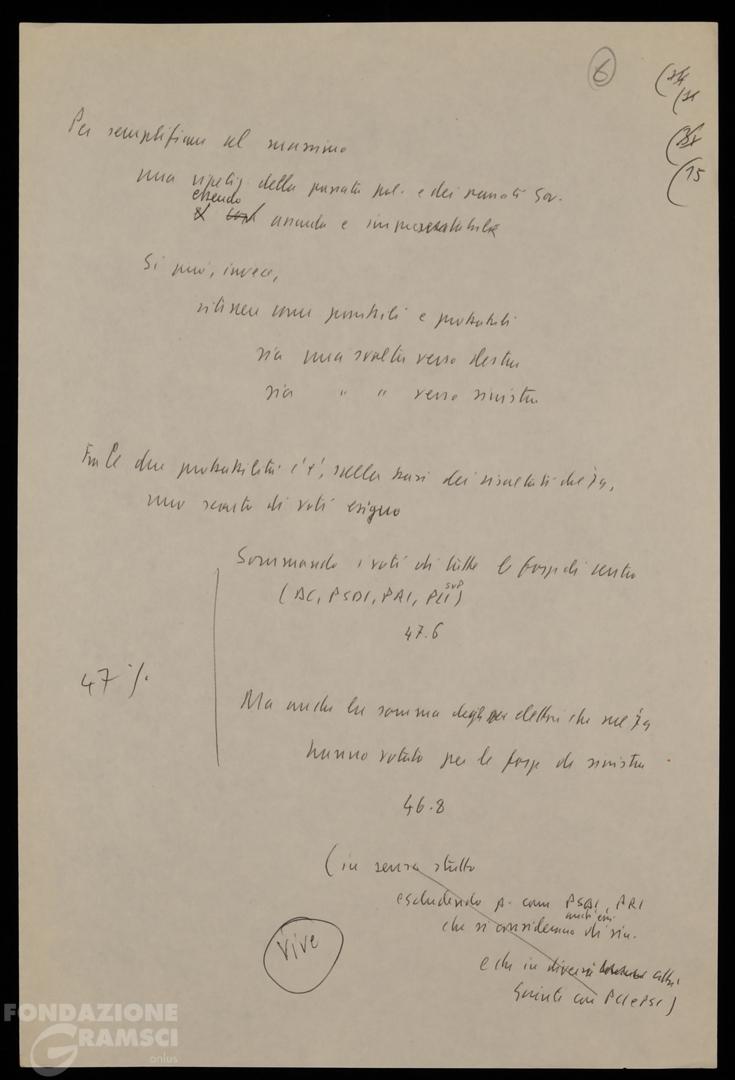 6
(34
(31
(38
(15
Per semplificare al massimo
una ripetiz. della passata pol. e dei passati gov.
essendo
assurda e impresentabile
Si può, invece,
ritenere come possibili e probabili
sia una svolta verso destra
sia " " verso sinistra
Fra le due probabilità c'è, sulla base dei risultati del '79,
uno scarto di voti esiguo
Sommando i voti di tutte le forze di centro
(DC, PSDI, PRI, PLI, SVP)
47.6
47%
Ma anche la somma degli elettori che nel '79
hanno votato per le forze di sinistra
46.8
(in senso stretto
escludendo p. com PSDI, PRI
anch'essi
che si considerano di sin.
e che in diverse altre
Giunte con PCI e PSI)
vive
FONDAZIONE
GRAMSCI
onlus